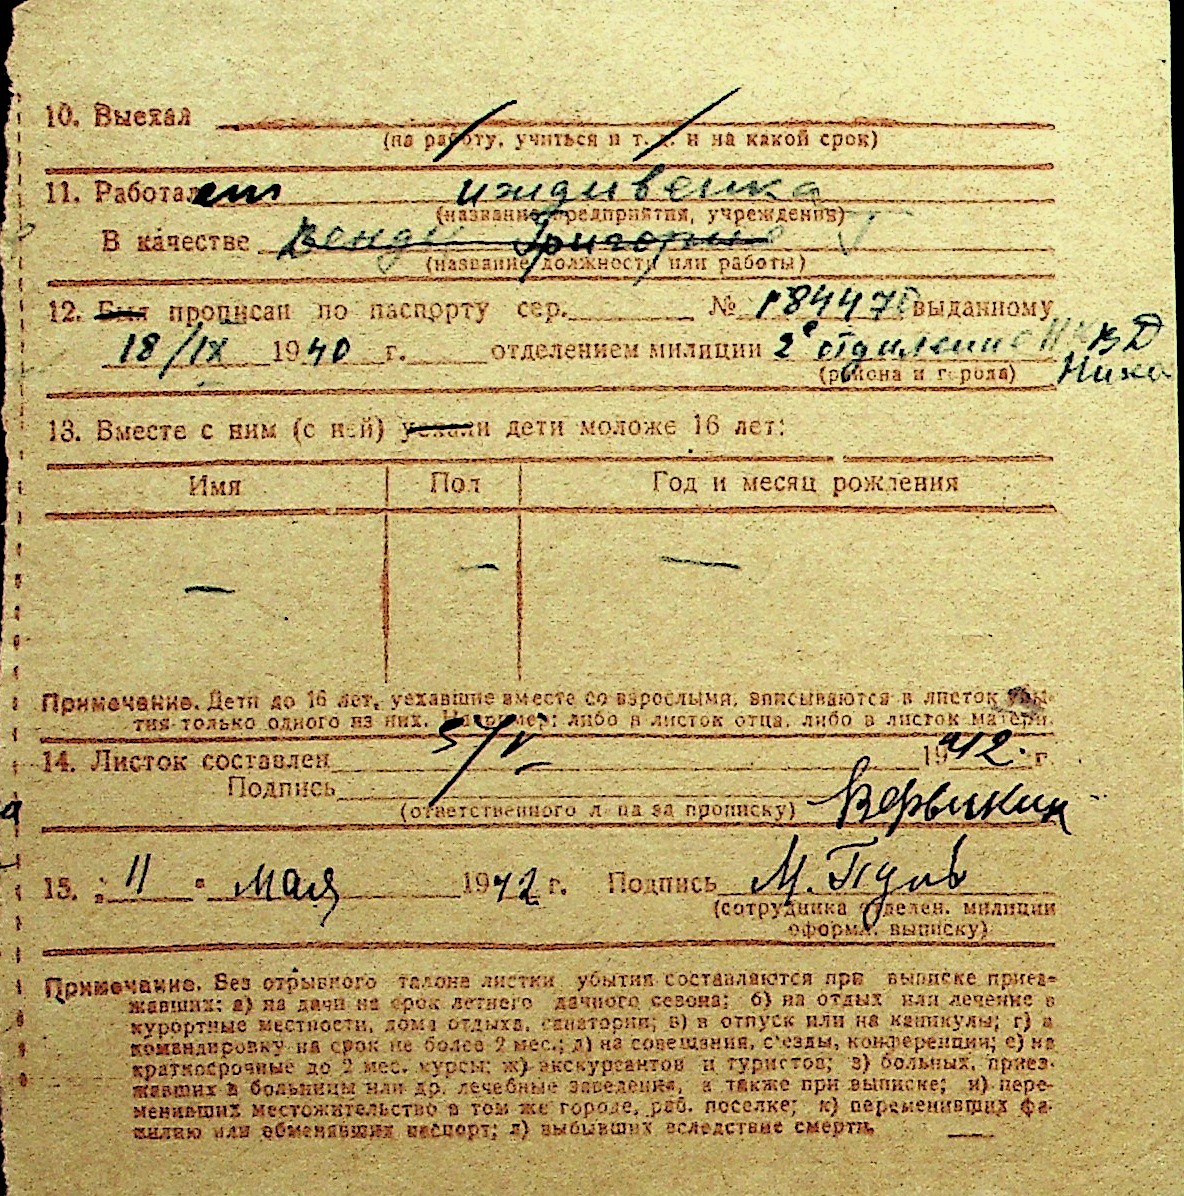 10. Выехал
(на работу, учиться и т. д. и на какой срок)
11. Работает иждивенка
(название предприятия, учреждения)
В качестве Григорие
(название должности или работы)
12. Был прописан по паспорту сер. № выданному
18/IX 1940 г. отделением милиции 2е отделение НКВД
(района и города)
13. Вместе с ним (с ней) уехали дети моложе 16 лет:
Имя Пол Год и месяц рождения
— — —
Примечание. Дети до 16 лет, уехавшие вместе со взрослыми, вписываются в листок убы-
тия только одного из них. Например: либо в листок отца, либо в листок матери.
14. Листок составлен 5/V 1942 г.
Подпись
(ответственного лица за прописку)
15. „ 11 " мая 1942 г. Подпись
(сотрудника отделен. милиции
оформл. выписку)
Примечание. Без отрывного талона листки убытия составляются при выписке приез-
жавших: а) на дачи на срок летнего дачного сезона; б) на отдых или лечение в
курортные местности, дома отдыха, санатории; в) в отпуск или на каникулы; г) в
командировку на срок не более 2 мес.; д) на совещания, съезды, конференции; е) на
краткосрочные до 2 мес. курсы; ж) экскурсантов и туристов; з) больных, приез-
жавших в больницы или др. лечебные заведения, а также при выписке; и) пере-
менивших местожительство в том же городе, раб. поселке; к) переменивших фа-
милию или обменявших паспорт; л) выбывших вследствие смерти.